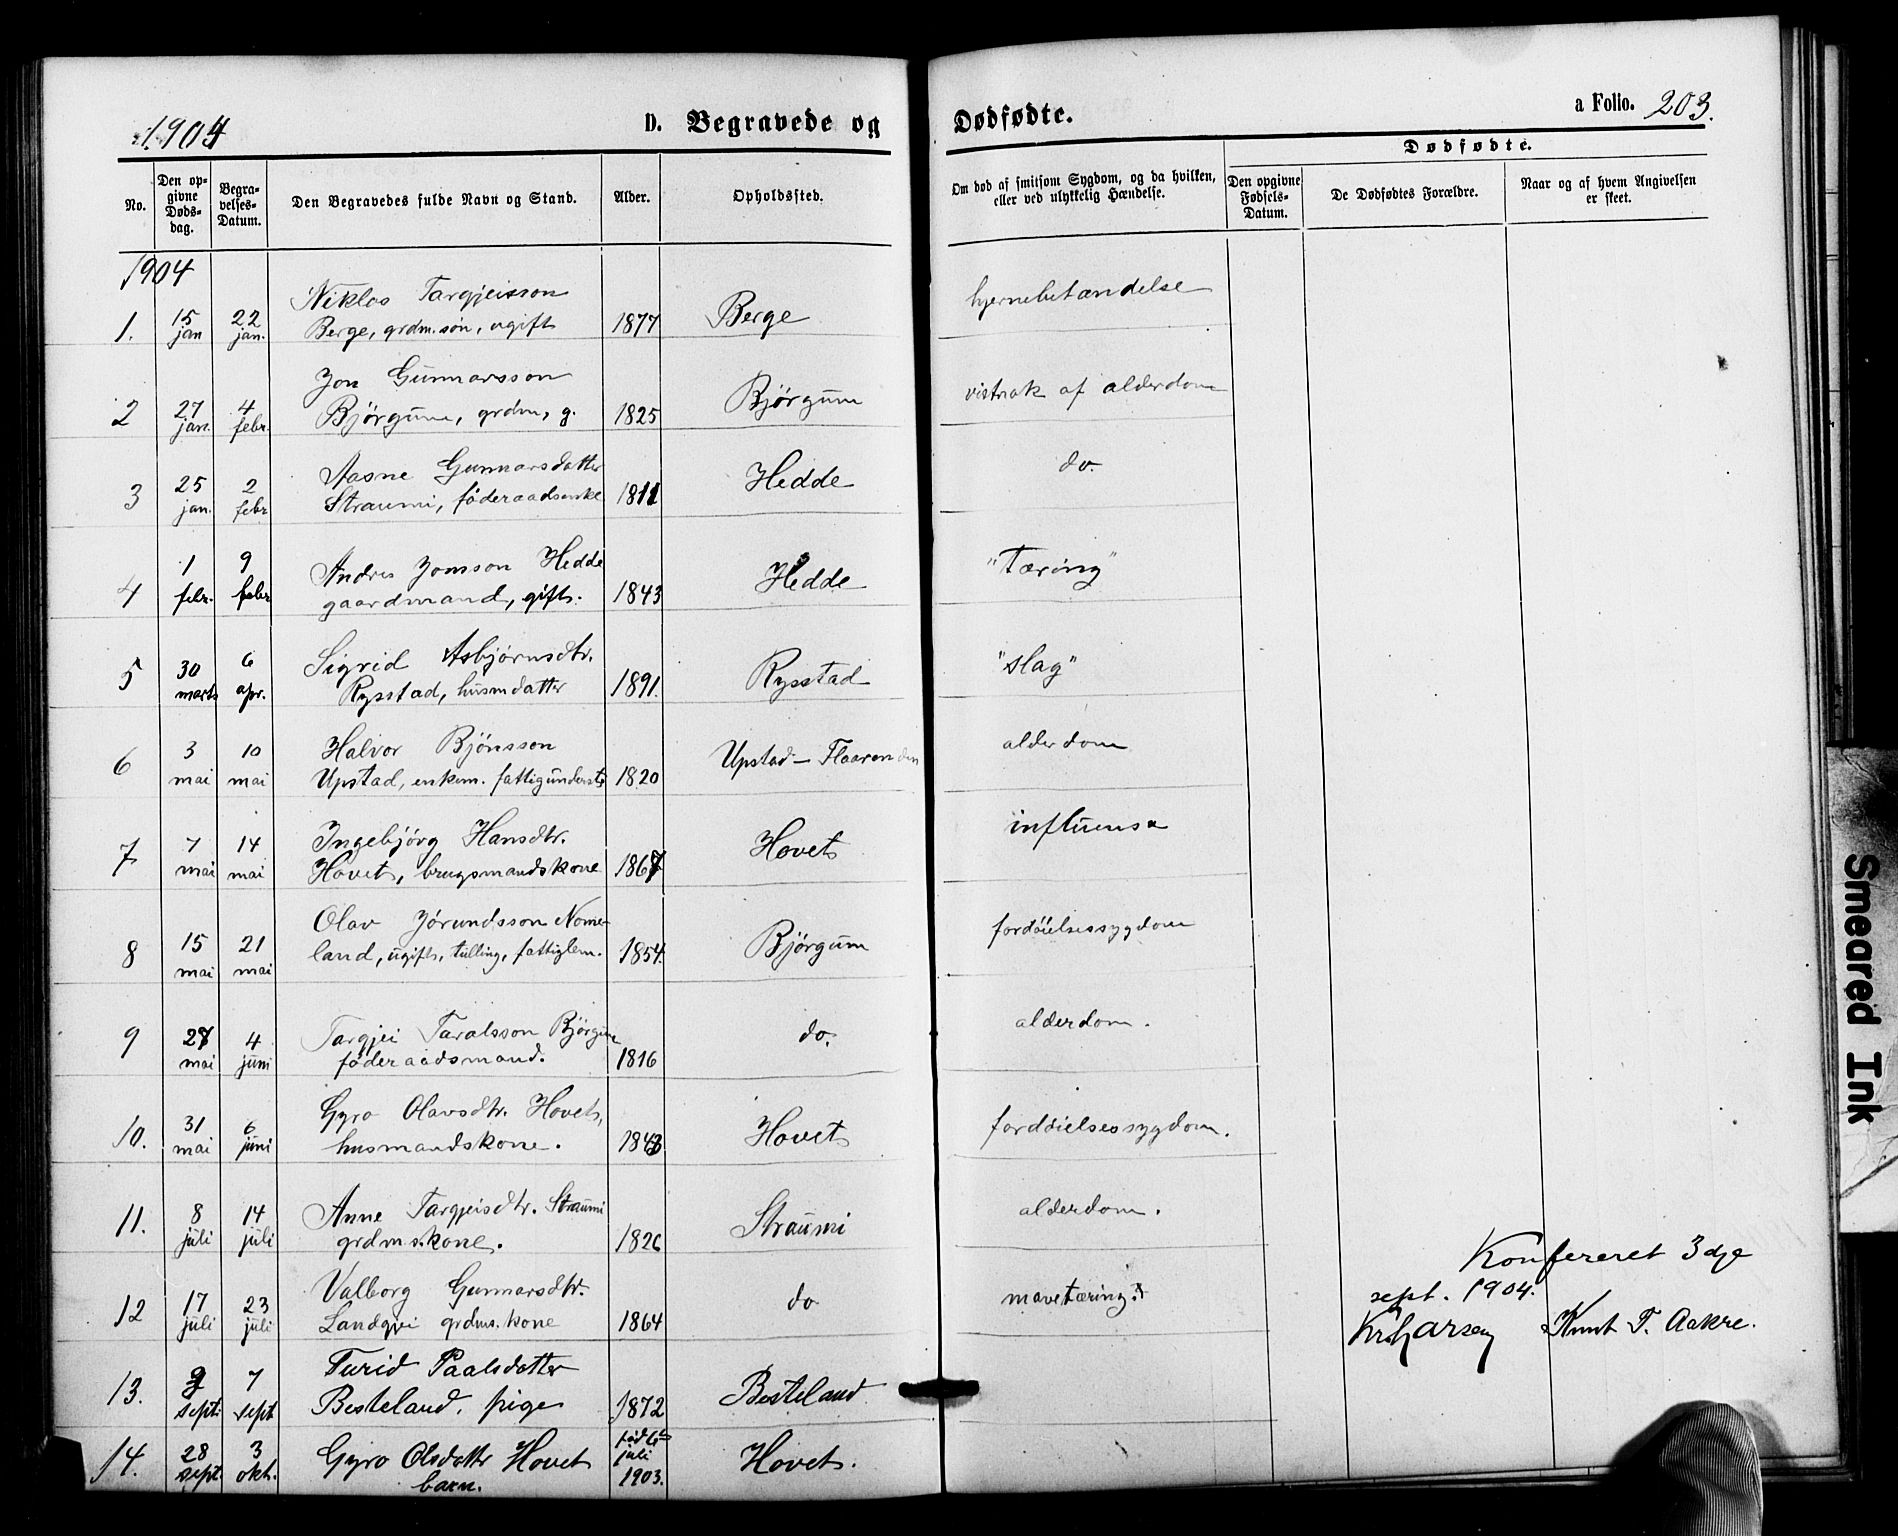 1904
D. Begravede og Dødfødte.
a Folio. 203.
No.
Den opgivne Dødsdag.
Begravelses-Datum.
Den Begravedes fulde Navn og Stand.
Alder.
Opholdssted.
Om død af smitsom Sygdom, og da hvilken, eller ved ulykkelig Hændelse.
Dødfødte.
Den opgivne Fødsels-Datum.
De Dødfødtes Forældre.
Naar og af hvem Angivelsen er skeet.
1904
Niklos Targjeisson
1. 15 jan 22 jan. Berge, grdm.søn, ugift 1877 Berge hjernebetændelse
Jon Gunnarsson
2 27 jan. 4 febr. Bjørgum, grdm, g. 1825 Bjørgum af alderdom
Aasne Gunnarsdatter
3 25 jan. 2 febr Straumi, føderaadsenke 1811 Hedde do.
Andres Jonsson Hedde
4 1 febr. 9 febr gaardmand, gift. 1843 Hedde "Tæring"
Sigrid Asbjørnsdtr.
5 30 marts 6 apr. Rysstad, husmdatter 1891. Rysstad "slag"
Halvor Bjónsson
6 3 mai 10 mai Upstad, enkem. fattigunderst. 1820 Upstad - Flaarenden alderdom
Ingebjörg Hansdtr.
7 7 mai 14 mai Hovet, brugsmandskone 1867 Hovet influensa
Olav Jórundsson Nome-
8 15 mai 21 mai land, ugift, tulling, fattiglem. 1854. Bjørgum fordöielsessygdom
Targjei Taralsson Bjørgum
9 27 mai 4 juni föderaadsmand. 1816 do. alderdom.
Gyro Olavsdtr. Hovet,
10. 31 mai 6 juni husmandskone. 1843 Hovet fordöielsessygdom.
Anne Targjeisdtr. Straumi
11. 8 juli 14 juli grdmskone. 1826 Straumi alderdom.
Valborg Gunnarsdtr.
12 17 juli 23 juli Landgjei grdms.kone 1864 do mavetæring.
Turid Paalsdatter
13. 2 sept. 7 sept Besteland, pige 1872 Besteland
14. 28 sept. 3 okt. Gyro Olsdatter Hovet født 6te juli Hovet.
barn. 1903.
Konfereret 3dje
sept. 1904.
Kr. Larsen Knut T. Aakre.
Smeared Ink